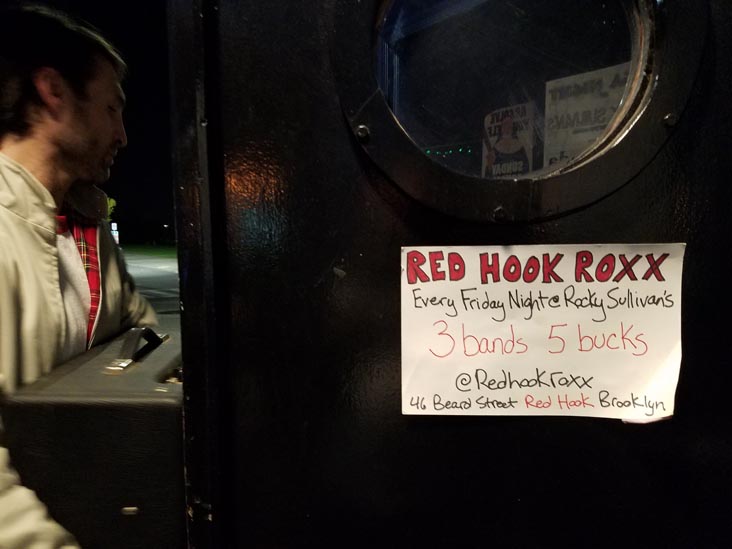 RED HOOK ROXX
Every Friday Night @ Rocky Sullivan's
3 bands 5 bucks
@Redhookroxx
46 Beard Street Red Hook Brooklyn
NIGHT
SUNDAY